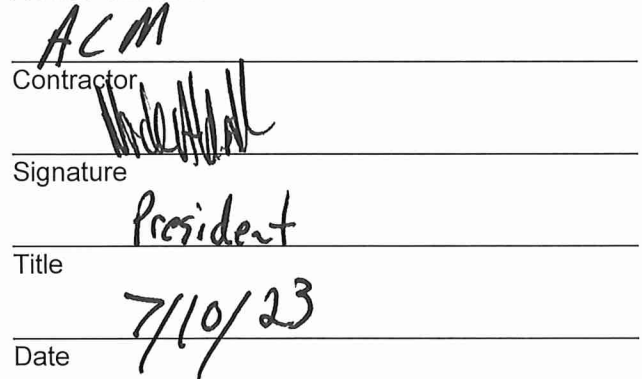 ACM
Contractor
Signature
President
Title
7/10/23
Date